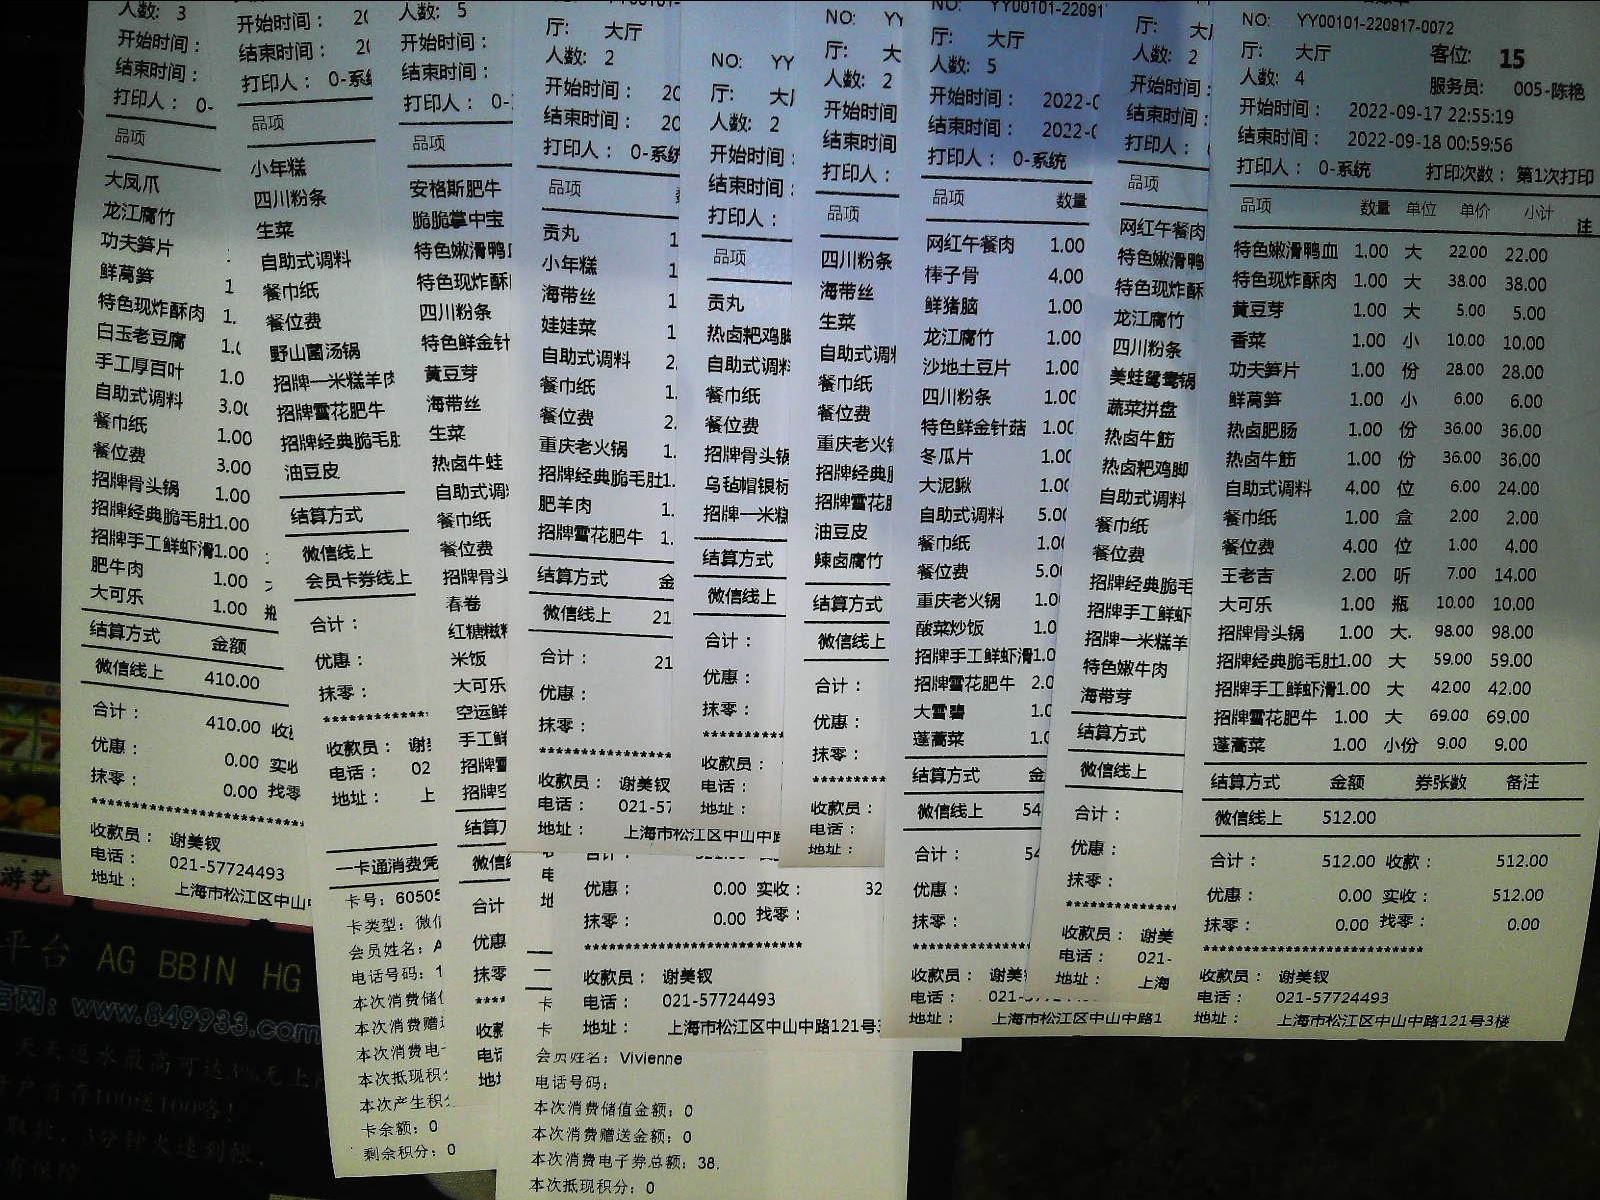 人数: 3
开始时间:
结束时间:
打印人: 0-
品项
大凤爪
龙江腐竹
功夫笋片
鲜莴笋 1
特色现炸酥肉 1.
白玉老豆腐 1.0
手工厚百叶 1.0
自助式调料 3.00
餐巾纸 1.00
餐位费 3.00
招牌骨头锅 1.00
招牌经典脆毛肚1.00
招牌手工鲜虾滑1.00
肥牛肉 1.00
大可乐 1.00 瓶
结算方式 金额
微信线上 410.00
合计: 410.00 收
优惠: 0.00 实收
抹零: 0.00 找零
******************************
收款员: 谢美钗
电话: 021-57724493
地址: 上海市松江区中山
开始时间: 20
结束时间: 20
打印人: 0-系统
品项
小年糕
四川粉条
生菜
自助式调料
餐巾纸
餐位费
野山菌汤锅
招牌一米糕羊肉
招牌雪花肥牛
招牌经典脆毛肚
油豆皮
结算方式
微信线上
会员卡券线上
合计:
优惠:
抹零:
**************
收款员: 谢
电话: 02
地址: 上
一卡通消费凭
卡号: 60505
卡类型: 微信
会员姓名: A
电话号码: 1
本次消费储值
本次消费赠送
本次消费电子
本次抵现积分
本次产生积分
卡余额: 0
剩余积分: 0
人数: 5
开始时间:
结束时间:
打印人: 0-
品项
安格斯肥牛
脆脆掌中宝
特色嫩滑鸭血
特色现炸酥肉
四川粉条
特色鲜金针
黄豆芽
海带丝
生菜
热卤牛蛙
自助式调
餐巾纸
餐位费
招牌骨头
春卷
红糖糍粑
米饭
大可乐
空运鲜
手工鲜
招牌雪
招牌空
结算方
微信线
合计
优惠
抹零
****
收款
电话
地址
厅: 大厅
人数: 2
开始时间: 20
结束时间: 20
打印人: 0-系统
品项
贡丸 1
小年糕 1
海带丝 1
娃娃菜 1
自助式调料 2.
餐巾纸 1.
餐位费 2.
重庆老火锅 1.
招牌经典脆毛肚1.
肥羊肉 1.
招牌雪花肥牛 1.
结算方式 金
微信线上 21
合计: 21
优惠:
抹零:
******************
收款员: 谢美钗
电话: 021-57
地址: 上海市松江区中山中路
优惠: 0.00 实收: 32
抹零: 0.00 找零:
******************************
收款员: 谢美钗
电话: 021-57724493
地址: 上海市松江区中山中路121号3
会员姓名: Vivienne
电话号码:
本次消费储值金额: 0
本次消费赠送金额: 0
本次消费电子券总额: 38.
本次抵现积分: 0
NO: YY
厅: 大厅
人数: 2
开始时间:
结束时间:
打印人:
品项
贡丸
热卤粑鸡脚
自助式调料
餐巾纸
餐位费
招牌骨头锅
乌毡帽银标
招牌一米糕
结算方式
微信线上
合计:
优惠:
抹零:
***********
收款员:
电话:
地址:
NO: YY
厅: 大
人数: 2
开始时间
结束时间
打印人:
品项
四川粉条
海带丝
生菜
自助式调料
餐巾纸
餐位费
重庆老火锅
招牌经典
招牌雪花
油豆皮
辣卤腐竹
结算方式
微信线上
合计:
优惠:
抹零:
**********
收款员:
电话:
地址:
NO: YY00101-22091
厅: 大厅
人数: 5
开始时间: 2022-0
结束时间: 2022-0
打印人: 0-系统
品项 数量
网红午餐肉 1.00
棒子骨 4.00
鲜猪脑 1.00
龙江腐竹 1.00
沙地土豆片 1.00
四川粉条 1.00
特色鲜金针菇 1.00
冬瓜片 1.00
大泥鳅 1.00
自助式调料 5.00
餐巾纸 1.00
餐位费 5.00
重庆老火锅 1.0
酸菜炒饭 1.0
招牌手工鲜虾滑1.0
招牌雪花肥牛 2.0
大雪碧 1.0
蓬蒿菜 1.0
结算方式 金
微信线上 54
合计: 54
优惠:
抹零:
****************
收款员: 谢美
电话: 021-
地址: 上海市松江区中山中路1
厅: 大厅
人数: 2
开始时间:
结束时间:
打印人:
品项
网红午餐肉
特色嫩滑鸭
特色现炸酥
龙江腐竹
四川粉条
美蛙鸳鸯锅
蔬菜拼盘
热卤牛筋
热卤粑鸡脚
自助式调料
餐巾纸
餐位费
招牌经典脆毛
招牌手工鲜虾
招牌一米糕羊
特色嫩牛肉
海带芽
结算方式
微信线上
合计:
优惠:
抹零:
***************
收款员: 谢美
电话: 021-
地址: 上海
NO: YY00101-220917-0072
厅: 大厅 客位: 15
人数: 4 服务员: 005-陈艳
开始时间: 2022-09-17 22:55:19
结束时间: 2022-09-18 00:59:56
打印人: 0-系统 打印次数: 第1次打印
品项 数量 单位 单价 小计 注
特色嫩滑鸭血 1.00 大 22.00 22.00
特色现炸酥肉 1.00 大 38.00 38.00
黄豆芽 1.00 大 5.00 5.00
香菜 1.00 小 10.00 10.00
功夫笋片 1.00 份 28.00 28.00
鲜莴笋 1.00 小 6.00 6.00
热卤肥肠 1.00 份 36.00 36.00
热卤牛筋 1.00 份 36.00 36.00
自助式调料 4.00 位 6.00 24.00
餐巾纸 1.00 盒 2.00 2.00
餐位费 4.00 位 1.00 4.00
王老吉 2.00 听 7.00 14.00
大可乐 1.00 瓶 10.00 10.00
招牌骨头锅 1.00 大. 98.00 98.00
招牌经典脆毛肚1.00 大 59.00 59.00
招牌手工鲜虾滑1.00 大 42.00 42.00
招牌雪花肥牛 1.00 大 69.00 69.00
蓬蒿菜 1.00 小份 9.00 9.00
结算方式 金额 券张数 备注
微信线上 512.00
合计: 512.00 收款: 512.00
优惠: 0.00 实收: 512.00
抹零: 0.00 找零: 0.00
******************************
收款员: 谢美钗
电话: 021-57724493
地址: 上海市松江区中山中路121号3楼
游艺
平台 AG BBIN HG
官网: www.849933.com
天天返水最高可达3%无上
户首存100送100咯!
取款, 3分钟火速到帐,
有保障